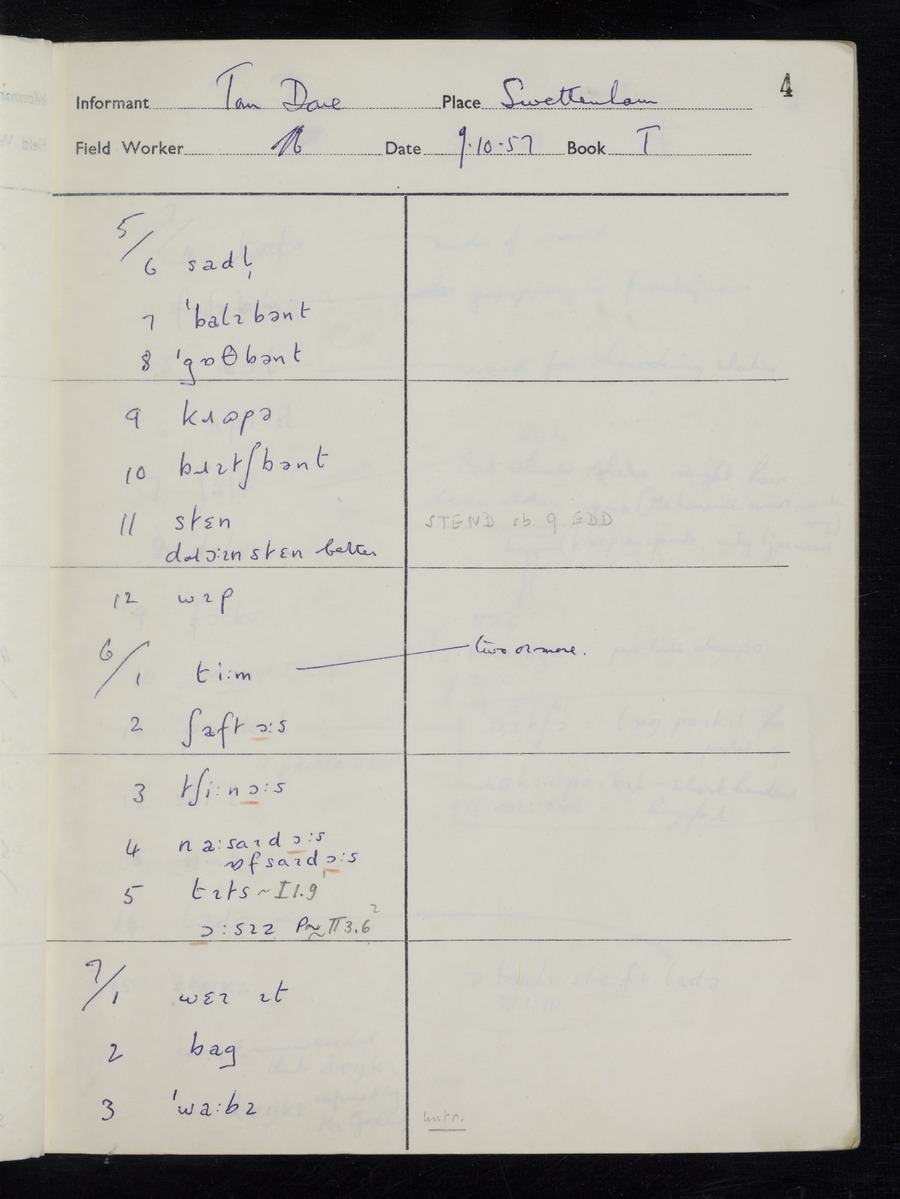 4
Informant Tom Dave Place Swettenham
Field Worker Date 9.10.57 Book I
5/
6 sadl̩
7 ˈbalɪbənt
8 ˈgɒθbənt
9 kɹɒpə
10 bɹɪtʃbənt
11 stɛn STEND sb. 9 EDD
stɛn better
12 wɪp
6/
1 ti:m two or more.
2 ʃaftɔ:s
3 tʃi:nɔ:s
4 na:saɪdɔ:s
ɒfsaɪdɔ:s
5 tɪts ~ I 1.9
ɔ:sɪz P ≈ II 3.6²
7/
1 wɛɪ ɪt
2 bag
3 ˈwa:bɪ intr.